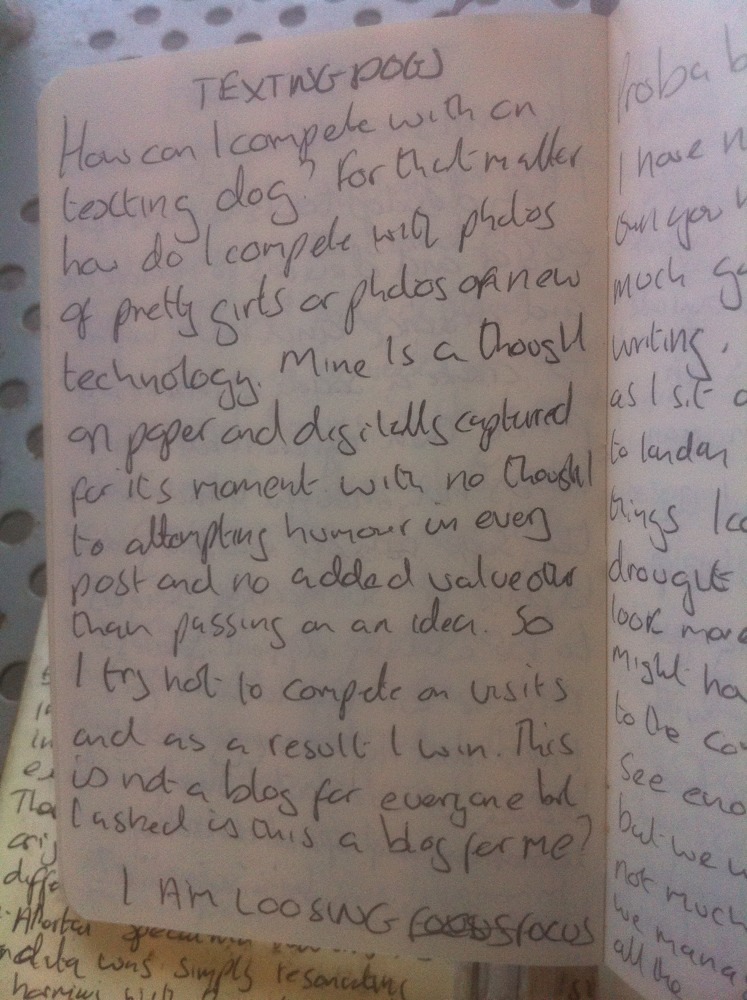 TEXTING DOGS
How can I compete with an
texting dog? For that matter
how do I compete with photos
of pretty girls or photos of new
technology. Mine is a thought
on paper and digitally captured
for its moment with no thought
to attempting humour in every
post and no added value other
than passing on an idea. So
I try not to compete on visits
and as a result I win. This
is not a blog for everyone but
I asked is this a blog for me?
I AM LOOSING FOCUS
Proba
I have
much
writing.
as I sit
to london
things I
drought
look more
might
to the
See
but we
not much
we
all the
was simply resonating
with